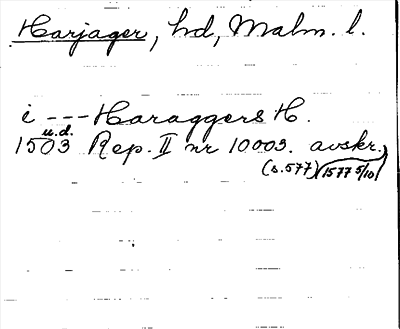 Harjager, hd, Malm. l.
i --- Haraggers H.
u.d.
1503 Rep. II nr 10003. avskr.
(s. 577) (1577 5/10)